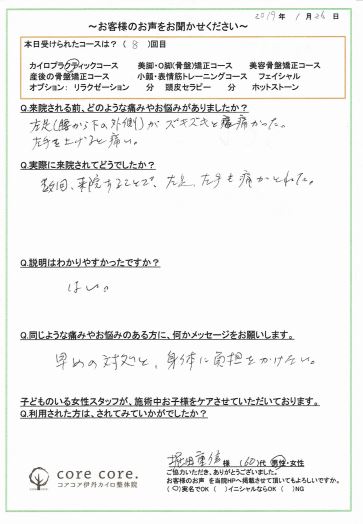 2019年 1月 26日
～お客様のお声をお聞かせください～
本日受けられたコースは？（ 8 ）回目
カイロプラクティックコース 美脚・O脚(骨盤)矯正コース 美容骨盤矯正コース
産後の骨盤矯正コース 小顔・表情筋トレーニングコース フェイシャル
オプション： リラクゼーション 分 頭皮セラピー 分 ホットストーン
Q.来院される前、どのような痛みやお悩みがありましたか？
左足(腰から下の外側)がズキズキと痛かった。
左手を上げると痛い。
Q.実際に来院されてどうでしたか？
数回、来院することで、左足、左手も痛がとれた。
Q.説明はわかりやすかったですか？
はい。
Q.同じような痛みやお悩みのある方に、何かメッセージをお願いします。
早めの対処と、身体に負担をかけない。
子どものいる女性スタッフが、施術中お子様をケアさせていただいております。
Q.利用された方は、されてみていかがでしたか？
様 (60)代 男性・女性
core core.
コアコア伊丹カイロ整体院
ご協力いただき、ありがとうございました。
お客様のお声 を当院HPへ掲載させて頂いてもよろしいですか。
(○)実名でOK ( )イニシャルならOK ( )NG